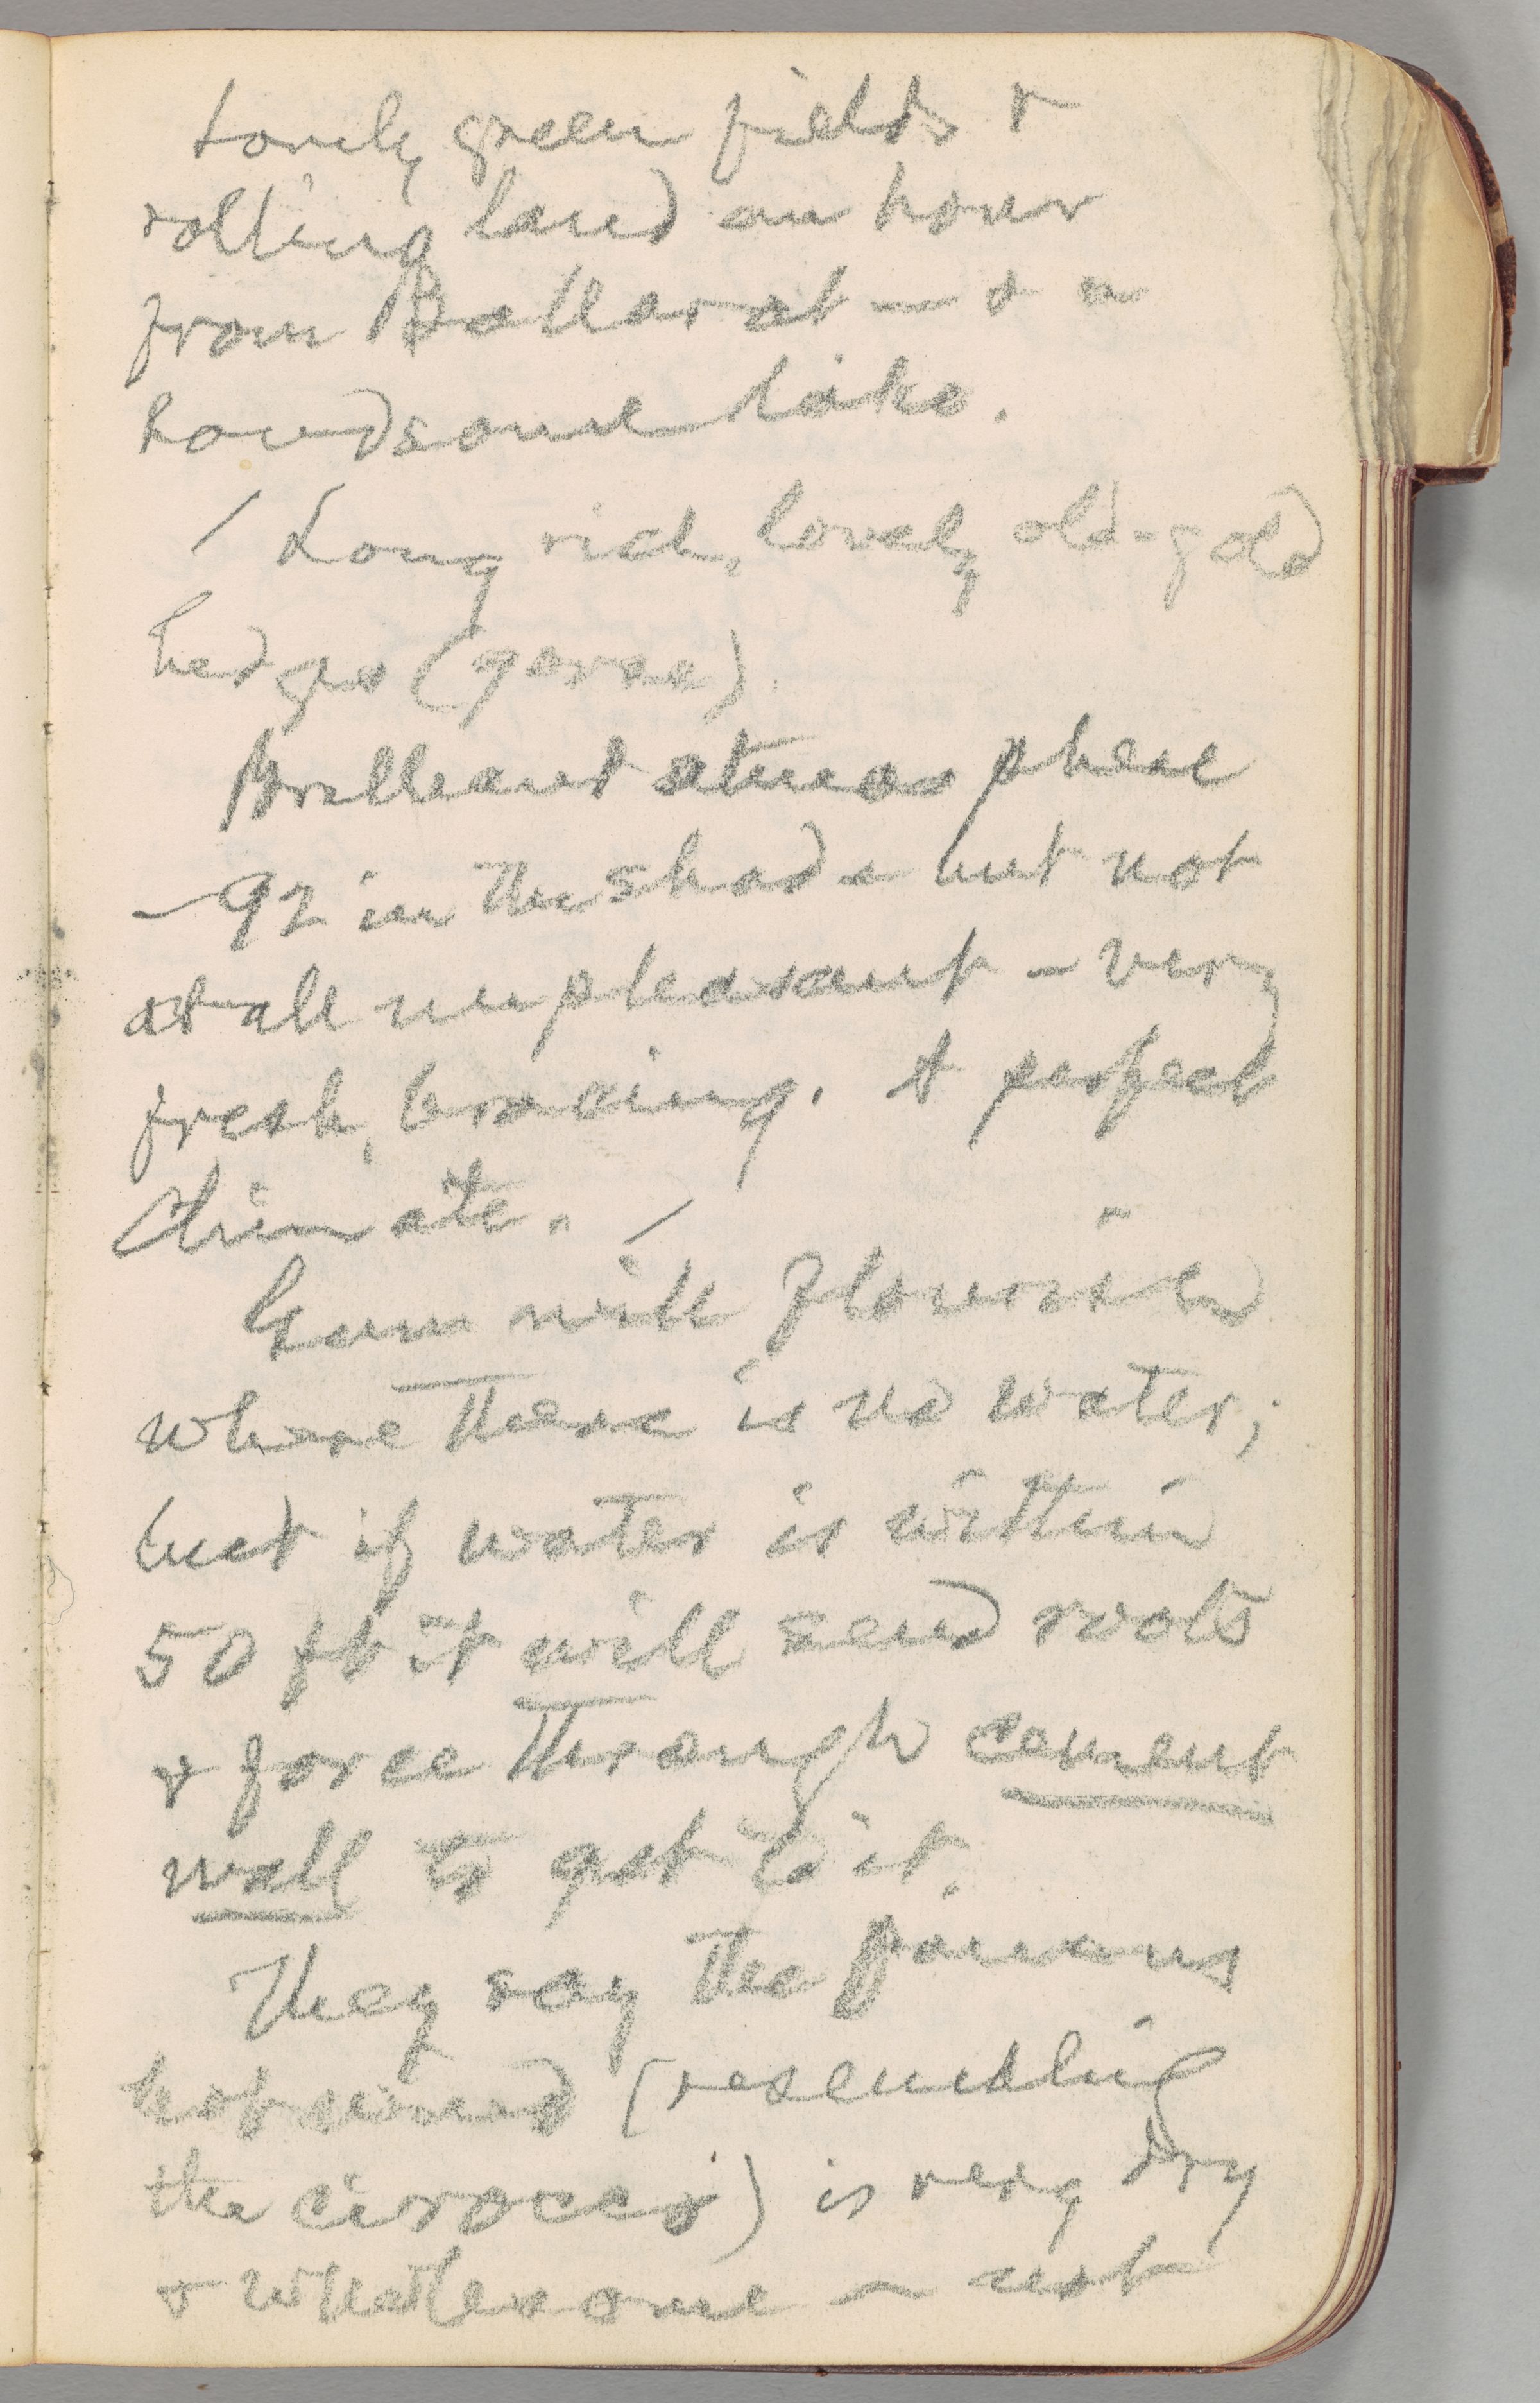 Lovely green fields &
rolling land an hour
from Ballarat — & a
handsome lake.
/ Long rich, lovely old-gold
hedges (gorse).
Brilliant atmosphere
— 92 in the shade but not
at all unpleasant — very
fresh, bracing. A perfect
climate. /
Gum will flourish
where there is no water;
but if water is within
50 ft it will send roots
& force through cement
wall to get to it.
They say the famous
hot wind (resembling
the cirocco) is very dry
& wholesome — not